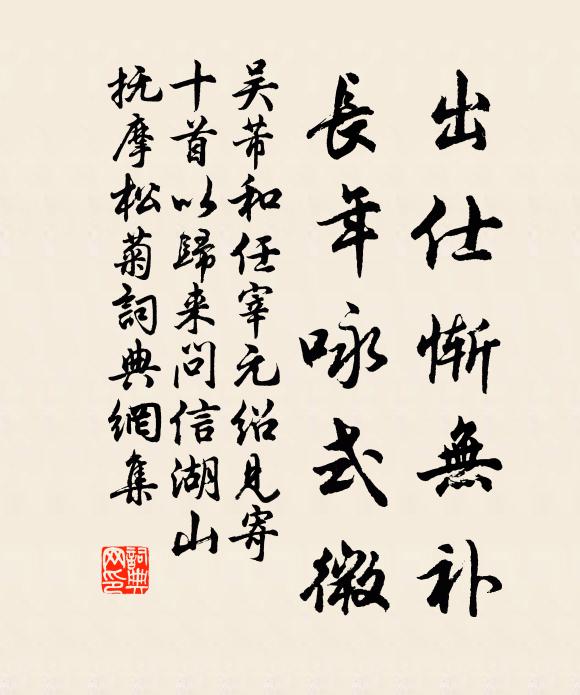 出仕惭無补
長年咏式微
吴芾和任宰元绍見寄
十首以歸来问信湖山
抚摩松菊詞典網集
詞典网印